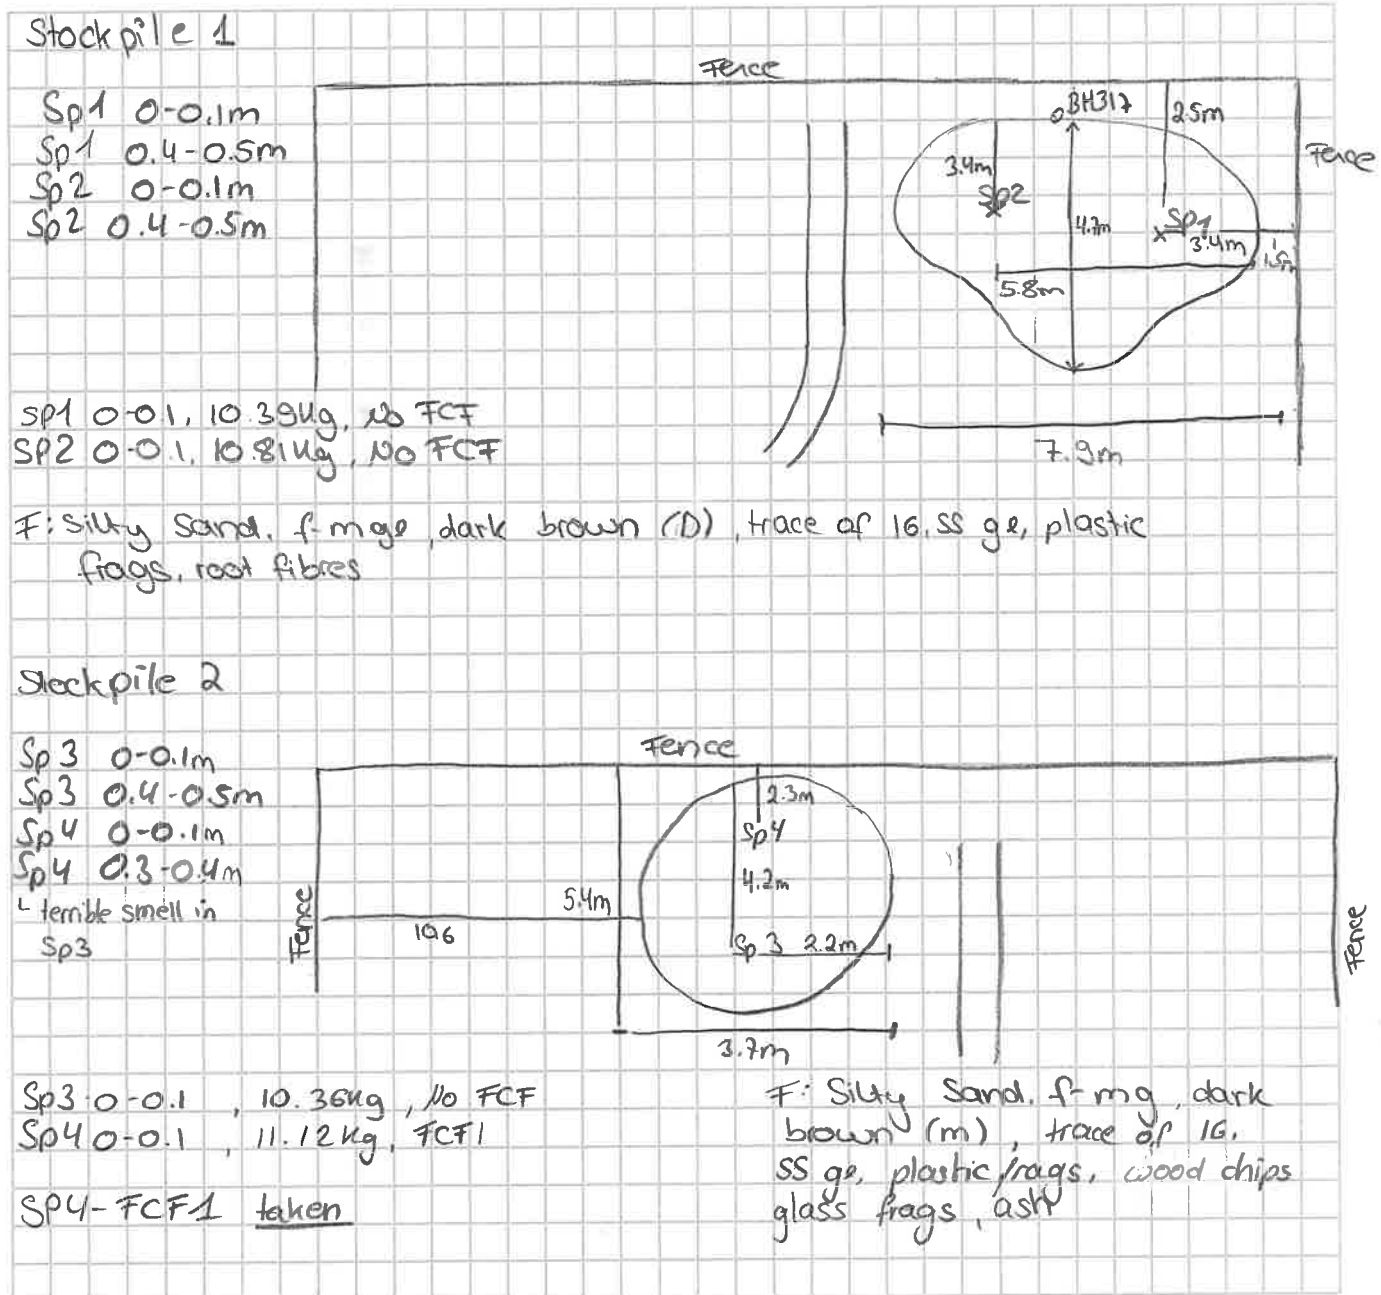 Stockpile 1
Fence
Sp1 0-0.1m
Sp1 0.4-0.5m
Sp2 0-0.1m
Sp2 0.4-0.5m
BH317
2.5m
Fence
3.4m
Sp2
4.7m
Sp1
3.4m
1.5m
5.8m
7.9m
SP1 0-0.1, 10.39kg, No FCF
SP2 0-0.1, 10.81kg, No FCF
F: Silty Sand, f-mge, dark brown (D), trace of 16. SS ge, plastic
frags, root fibres
Stockpile 2
Fence
Sp3 0-0.1m
Sp3 0.4-0.5m
Sp4 0-0.1m
Sp4 0.3-0.4m
terrible smell in
Sp3
Fence
2.3m
Sp4
4.2m
5.4m
Sp3 2.2m
3.7m
Fence
Sp3 0-0.1, 10.36kg, No FCF
Sp4 0-0.1, 11.12kg, FCF1
SP4-FCF1 taken
F: Silty Sand, f-mg, dark
brown (m), trace of 16.
SS ge, plastic frags, wood chips
glass frags, ash